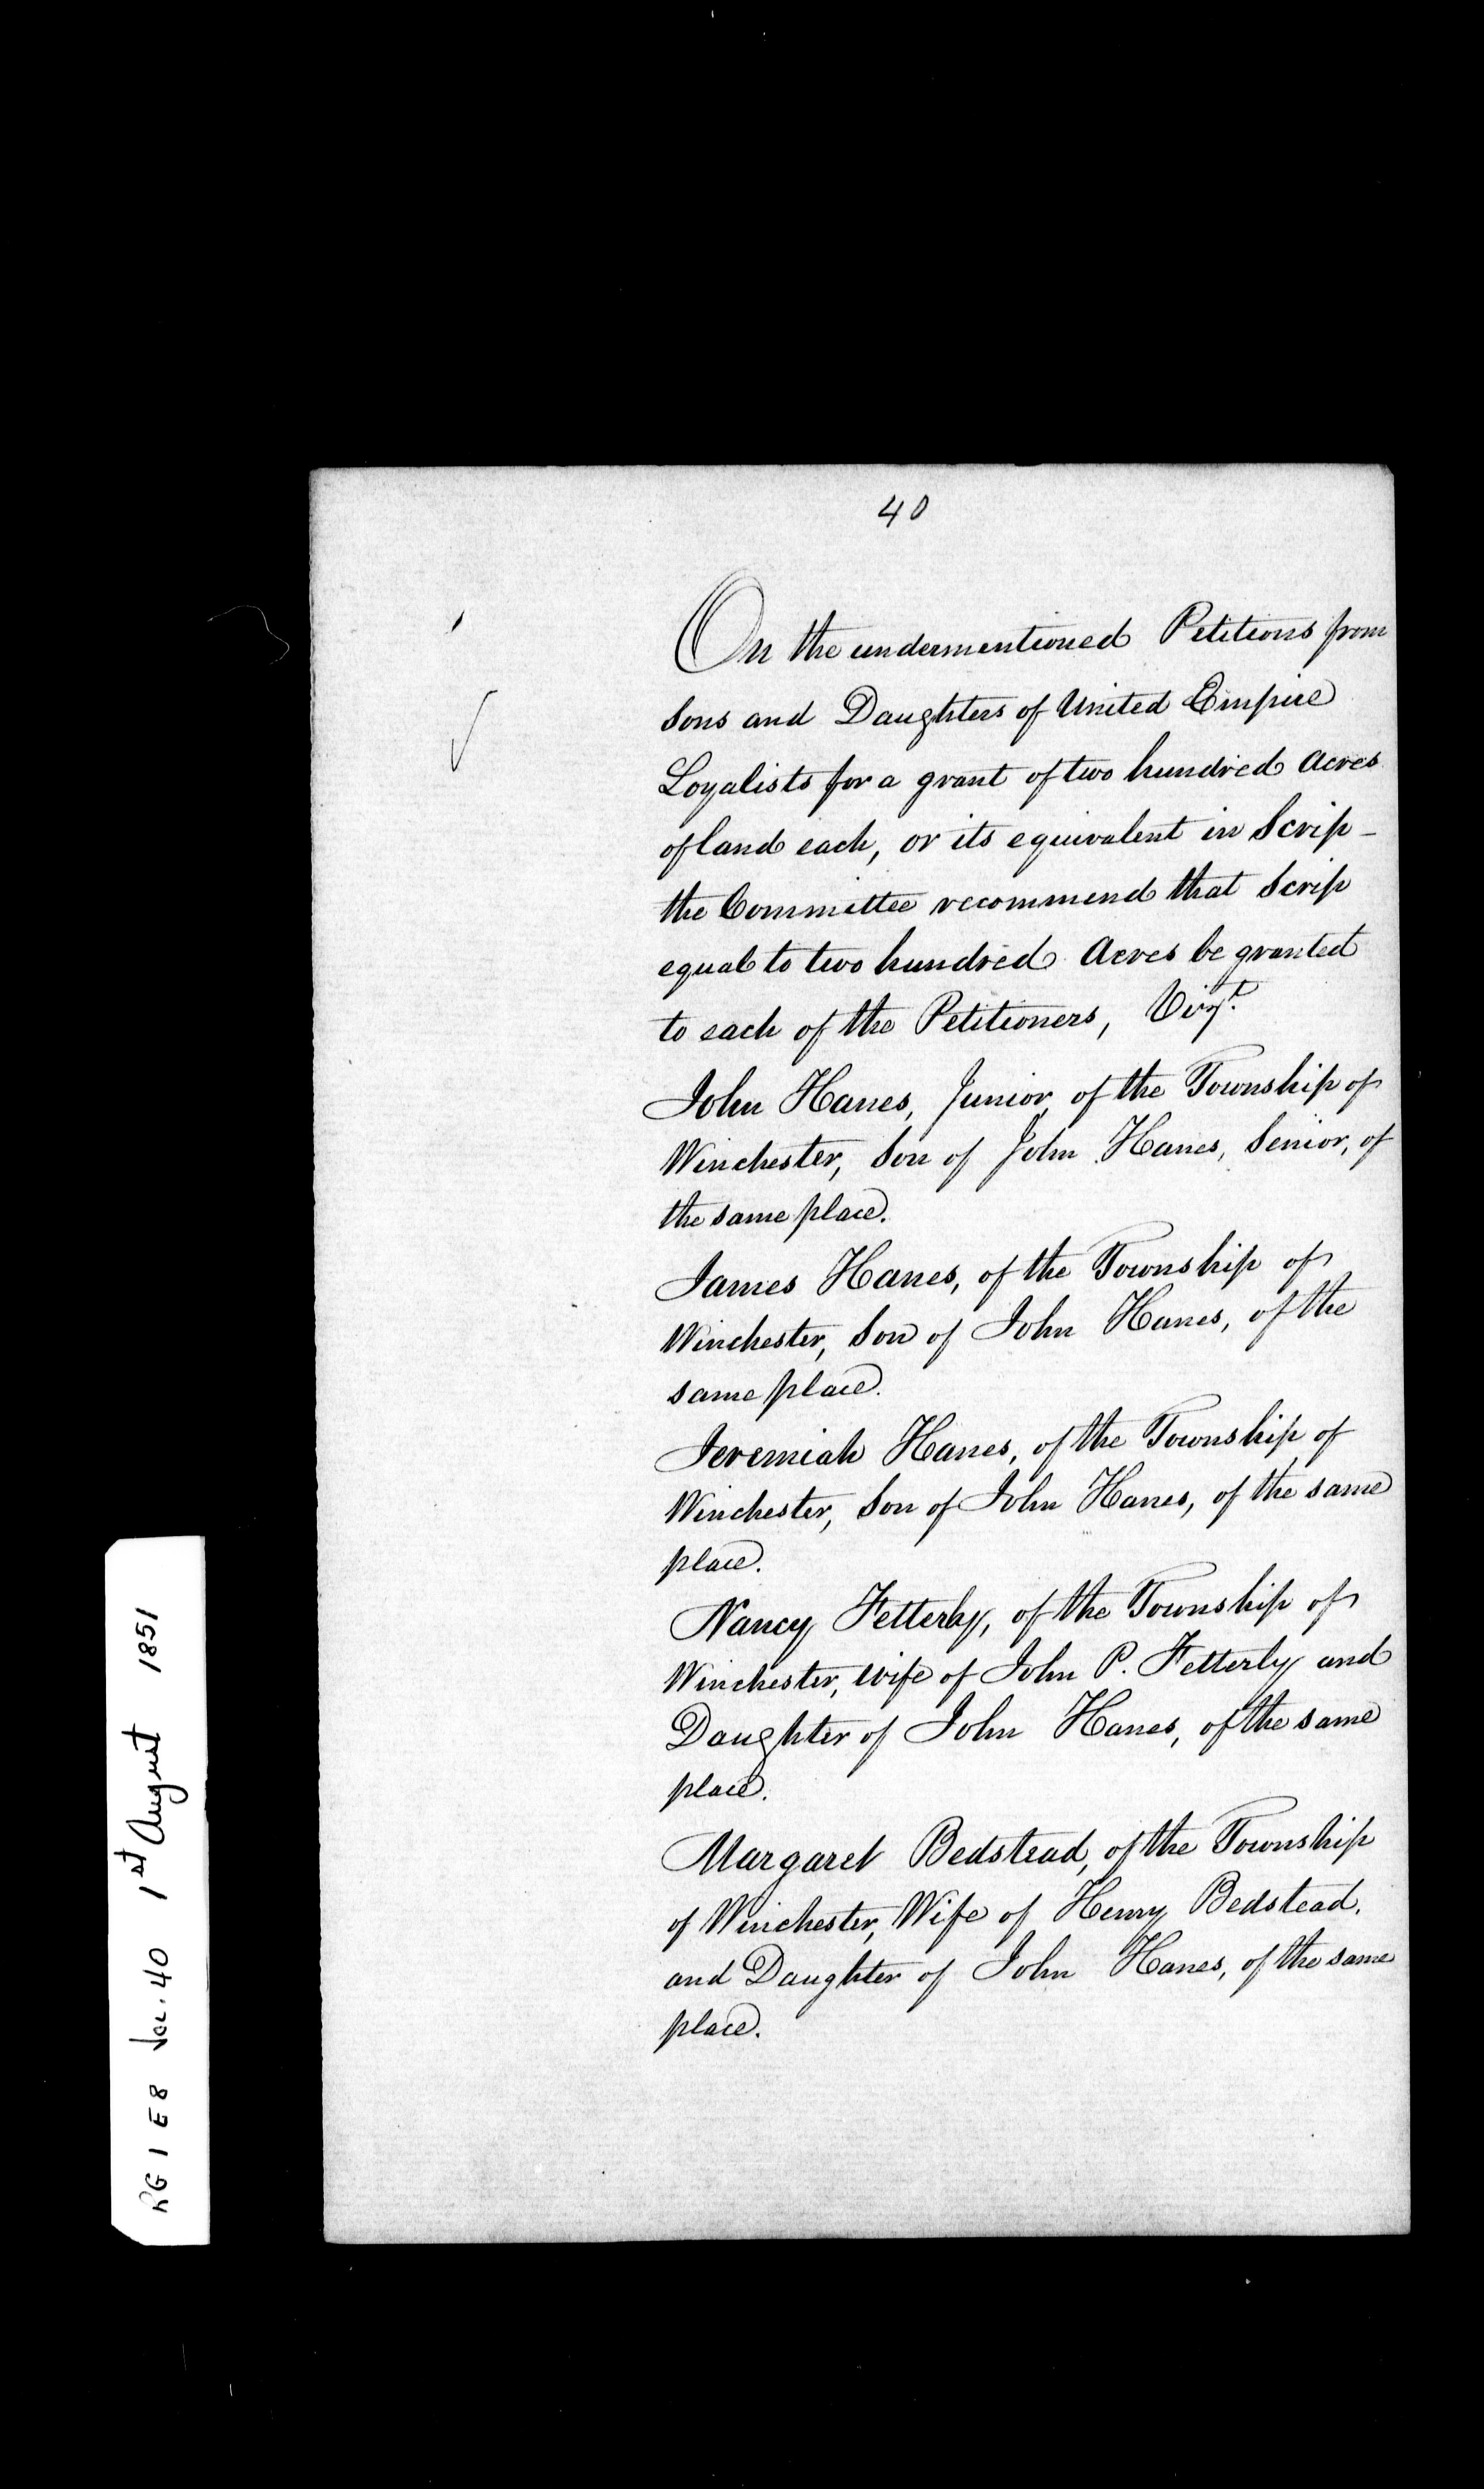 40
On the undermentioned Petitions from
Sons and Daughters of United Empire
Loyalists for a grant of two hundred Acres
of land each, or its equivalent in Scrip -
the Committee recommend that Scrip
equal to two hundred Acres be granted
to each of the Petitioners, Vizt.
John Hanes, Junior, of the Township of
Winchester, Son of John Hanes, Senior, of
the same place.
James Hanes, of the Township of
Winchester, Son of John Hanes, of the
same place.
Jeremiah Hanes, of the Township of
Winchester, Son of John Hanes, of the same
place.
Nancy Fetterly, of the Township of
Winchester, wife of John P. Fetterly and
Daughter of John Hanes, of the same
place.
Margaret Bedstead, of the Township
of Winchester, Wife of Henry Bedstead,
and Daughter of John Hanes, of the same
place.
RG 1 E8 Vol. 40 1st August 1851